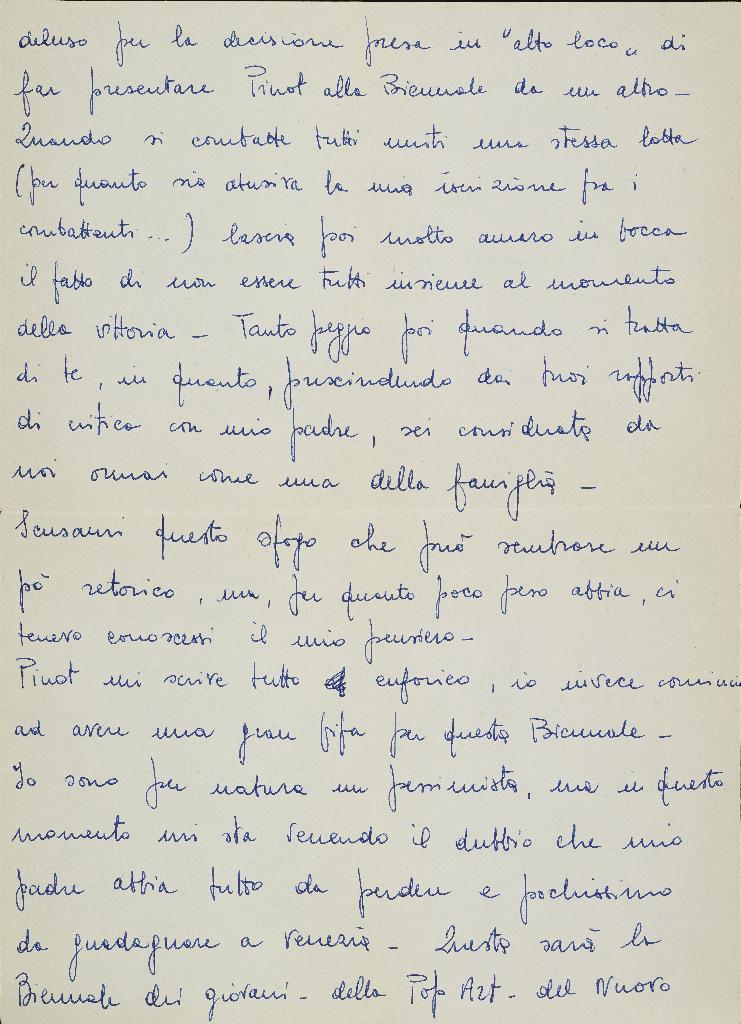 deluso per la decisione presa in "alto loco" di
far presentare Pinot alla Biennale da un altro -
Quando si combatte tutti uniti una stessa lotta
(per quanto sia abusiva la mia iscrizione fra i
combattenti...) lascia poi molto amaro in bocca
il fatto di non essere tutti insieme al momento
della vittoria - Tanto peggio poi quando si tratta
di te, in quanto, prescindendo dai tuoi rapporti
di critico con mio padre, sei considerata da
noi ormai come una della famiglia -
Scusami questo sfogo che può sembrare un
pò retorico, ma, per quanto poco peso abbia, ci
tenevo conoscessi il mio pensiero -
Pinot mi scrive tutto euforico, io invece comincio
ad avere una gran fifa per questa Biennale -
Io sono per natura un pessimista, ma in questo
momento mi sta venendo il dubbio che mio
padre abbia tutto da perdere e pochissimo
da guadagnare a Venezia - Questa sarà la
Biennale dei giovani - della Pop Art - del Nuovo